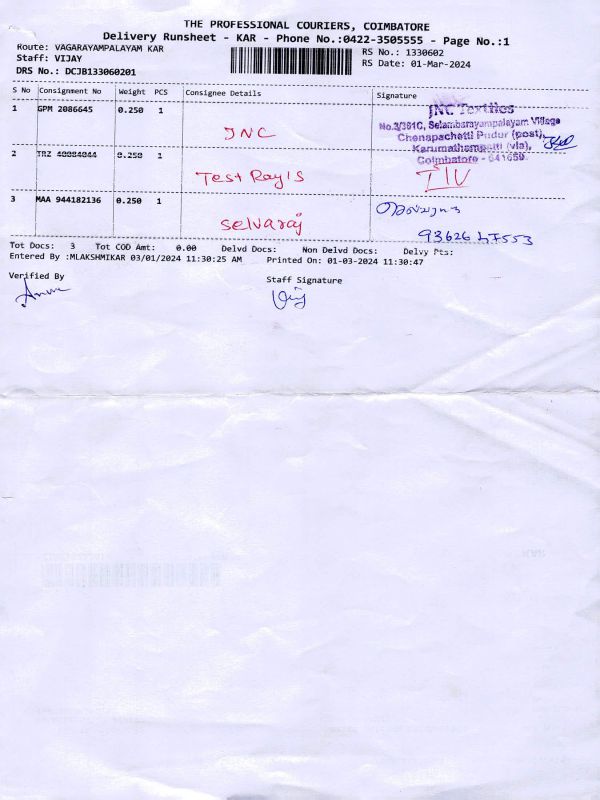 THE PROFESSIONAL COURIERS, COIMBATORE
Delivery Runsheet - KAR - Phone No.:0422-3505555 - Page No.:1
Route: VAGARAYAMPALAYAM KAR
RS No.: 1330602
Staff: VIJAY
RS Date: 01-Mar-2024
DRS No.: DCJB133060201
S No Consignment No Weight PCS Consignee Details Signature
1 GPM 2086645 0.250 1
JNC
JNC Textiles
No.3/381C, Selambarayampalayam Village
Chenapachetti Pudur (post),
Karumathampatti (via),
Coimbatore - 641659
2 TRZ 40084044 0.250 1
Test Ray's
IIV
3 MAA 944182136 0.250 1
Selvaraj
93626 47553
Tot Docs: 3 Tot COD Amt: 0.00 Delvd Docs: Non Delvd Docs: Delvy Pts:
Entered By :MLAKSHMIKAR 03/01/2024 11:30:25 AM Printed On: 01-03-2024 11:30:47
Verified By
Staff Signature